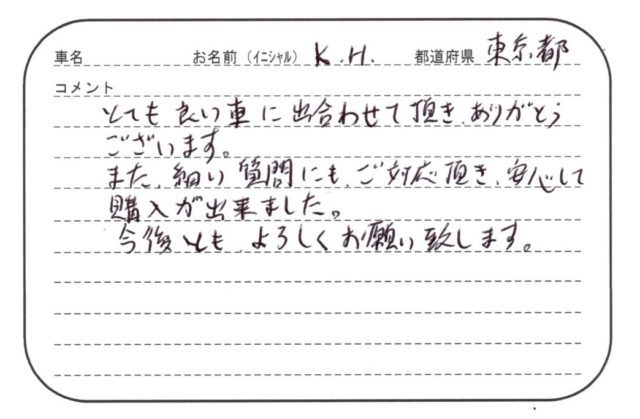 車名 お名前（イニシャル） K.H. 都道府県 東京都
コメント
とても良い車に出合わせて頂き、ありがとう
ございます。
また、細い質問にも、ご対応頂き、安心して
購入が出来ました。
今後とも、よろしくお願い致します。